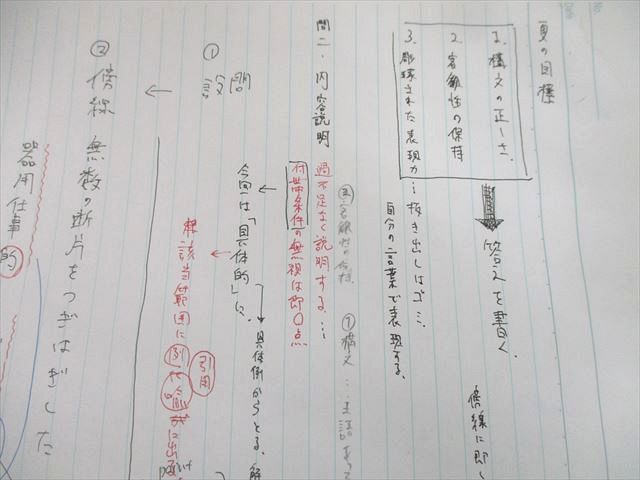 夏の目標
1. 構文の正しさ
2. 客観性の保持
3. 彫琢された表現力…抜き出しはゴミ…
自分の言葉で表現する。
答えを書く。
傍線に即し
問二・内容説明
②客観性の保持
①構文…主語あって
過不足なく説明する…
付帯条件の無視は即〇点
①設問
今回は「具体的」に、
具体例からとる。解
解 該当範囲に 例 比喩 が出る
引用
②傍線 無数の断片をつぎはぎした
器用仕事的